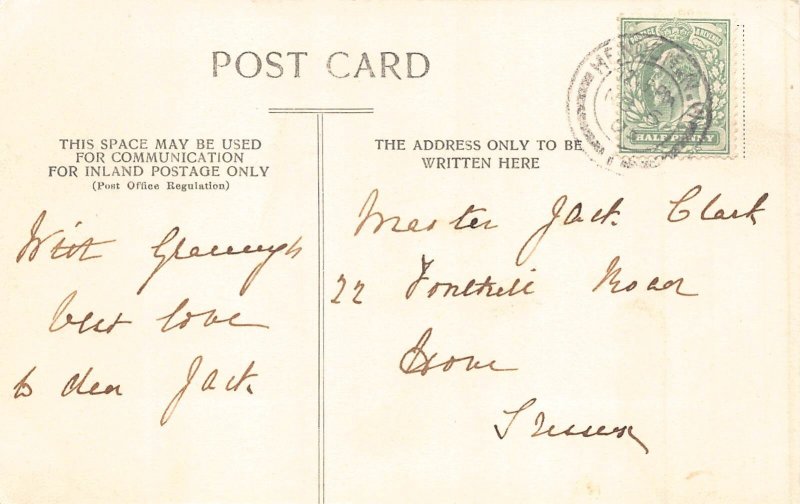 POST CARD
THIS SPACE MAY BE USED
FOR COMMUNICATION
FOR INLAND POSTAGE ONLY
(Post Office Regulation)
THE ADDRESS ONLY TO BE
WRITTEN HERE
POSTAGE & REVENUE
HALF PENNY
With
best love
to dear Jack.
Master Jack. Clark
22 Fonthill Road
Hove
Sussex